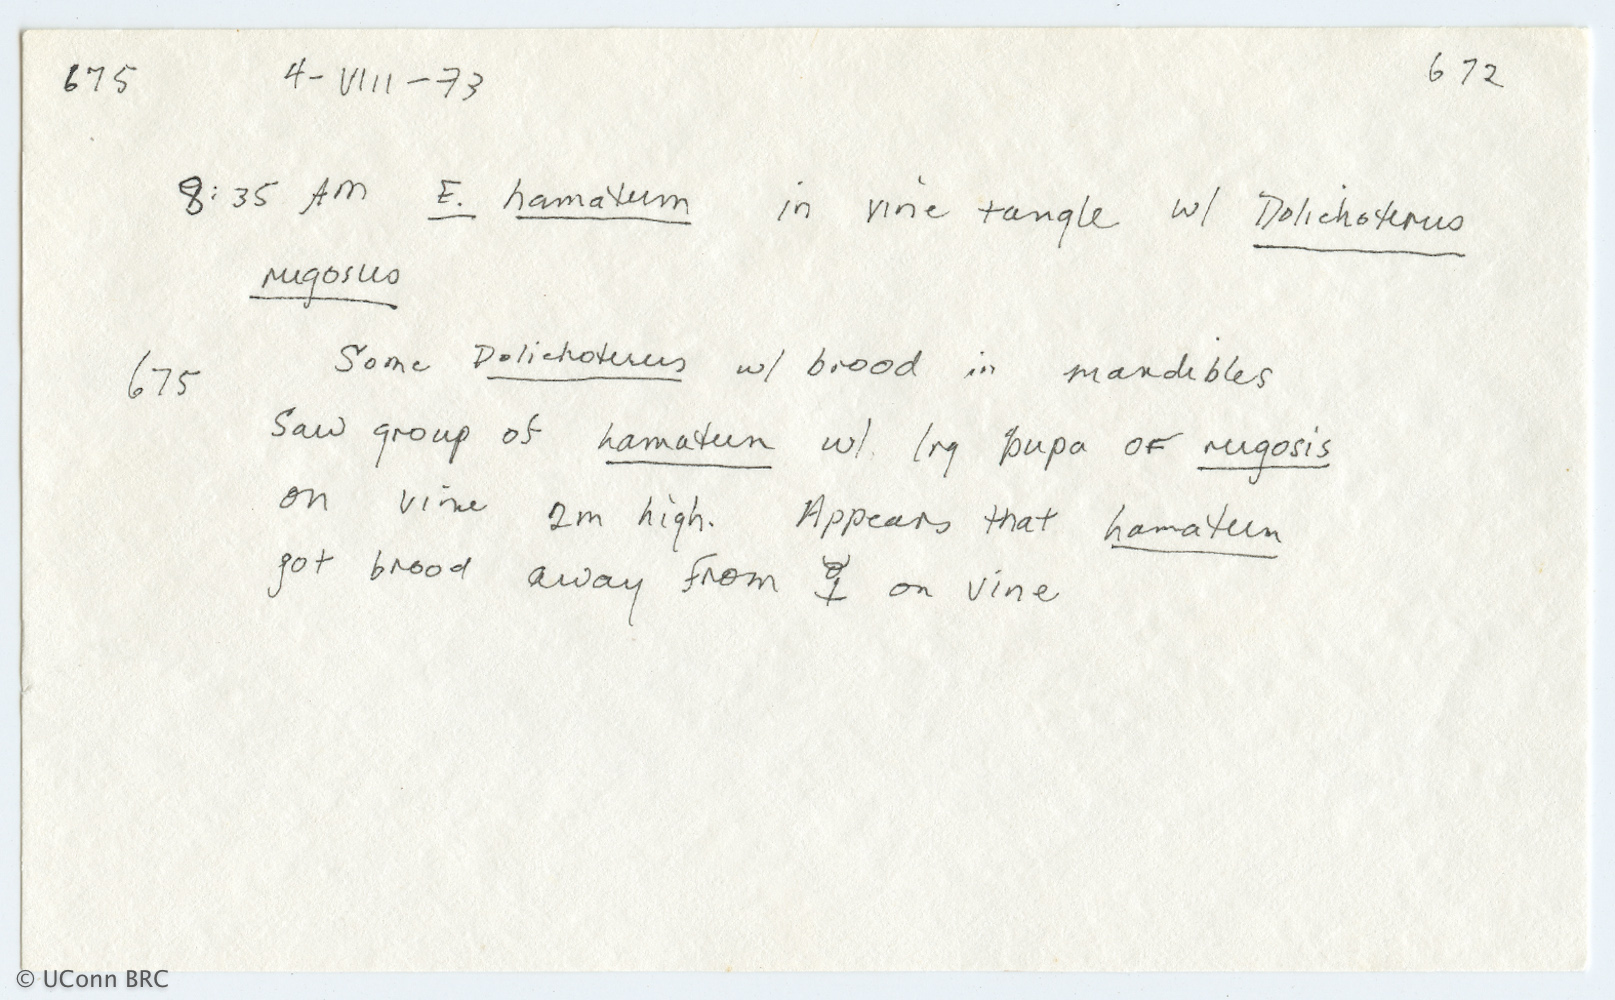 675 4-VIII-73 672
8:35 AM E. hamatum in vine tangle w/ Dolichoterus
rugosus
675 Some Dolichoterus w/ brood in mandibles
Saw group of hamatum w/ lrg pupa of rugosis
on vine 2m high. Appears that hamatum
got brood away from ☿ on vine
© UConn BRC